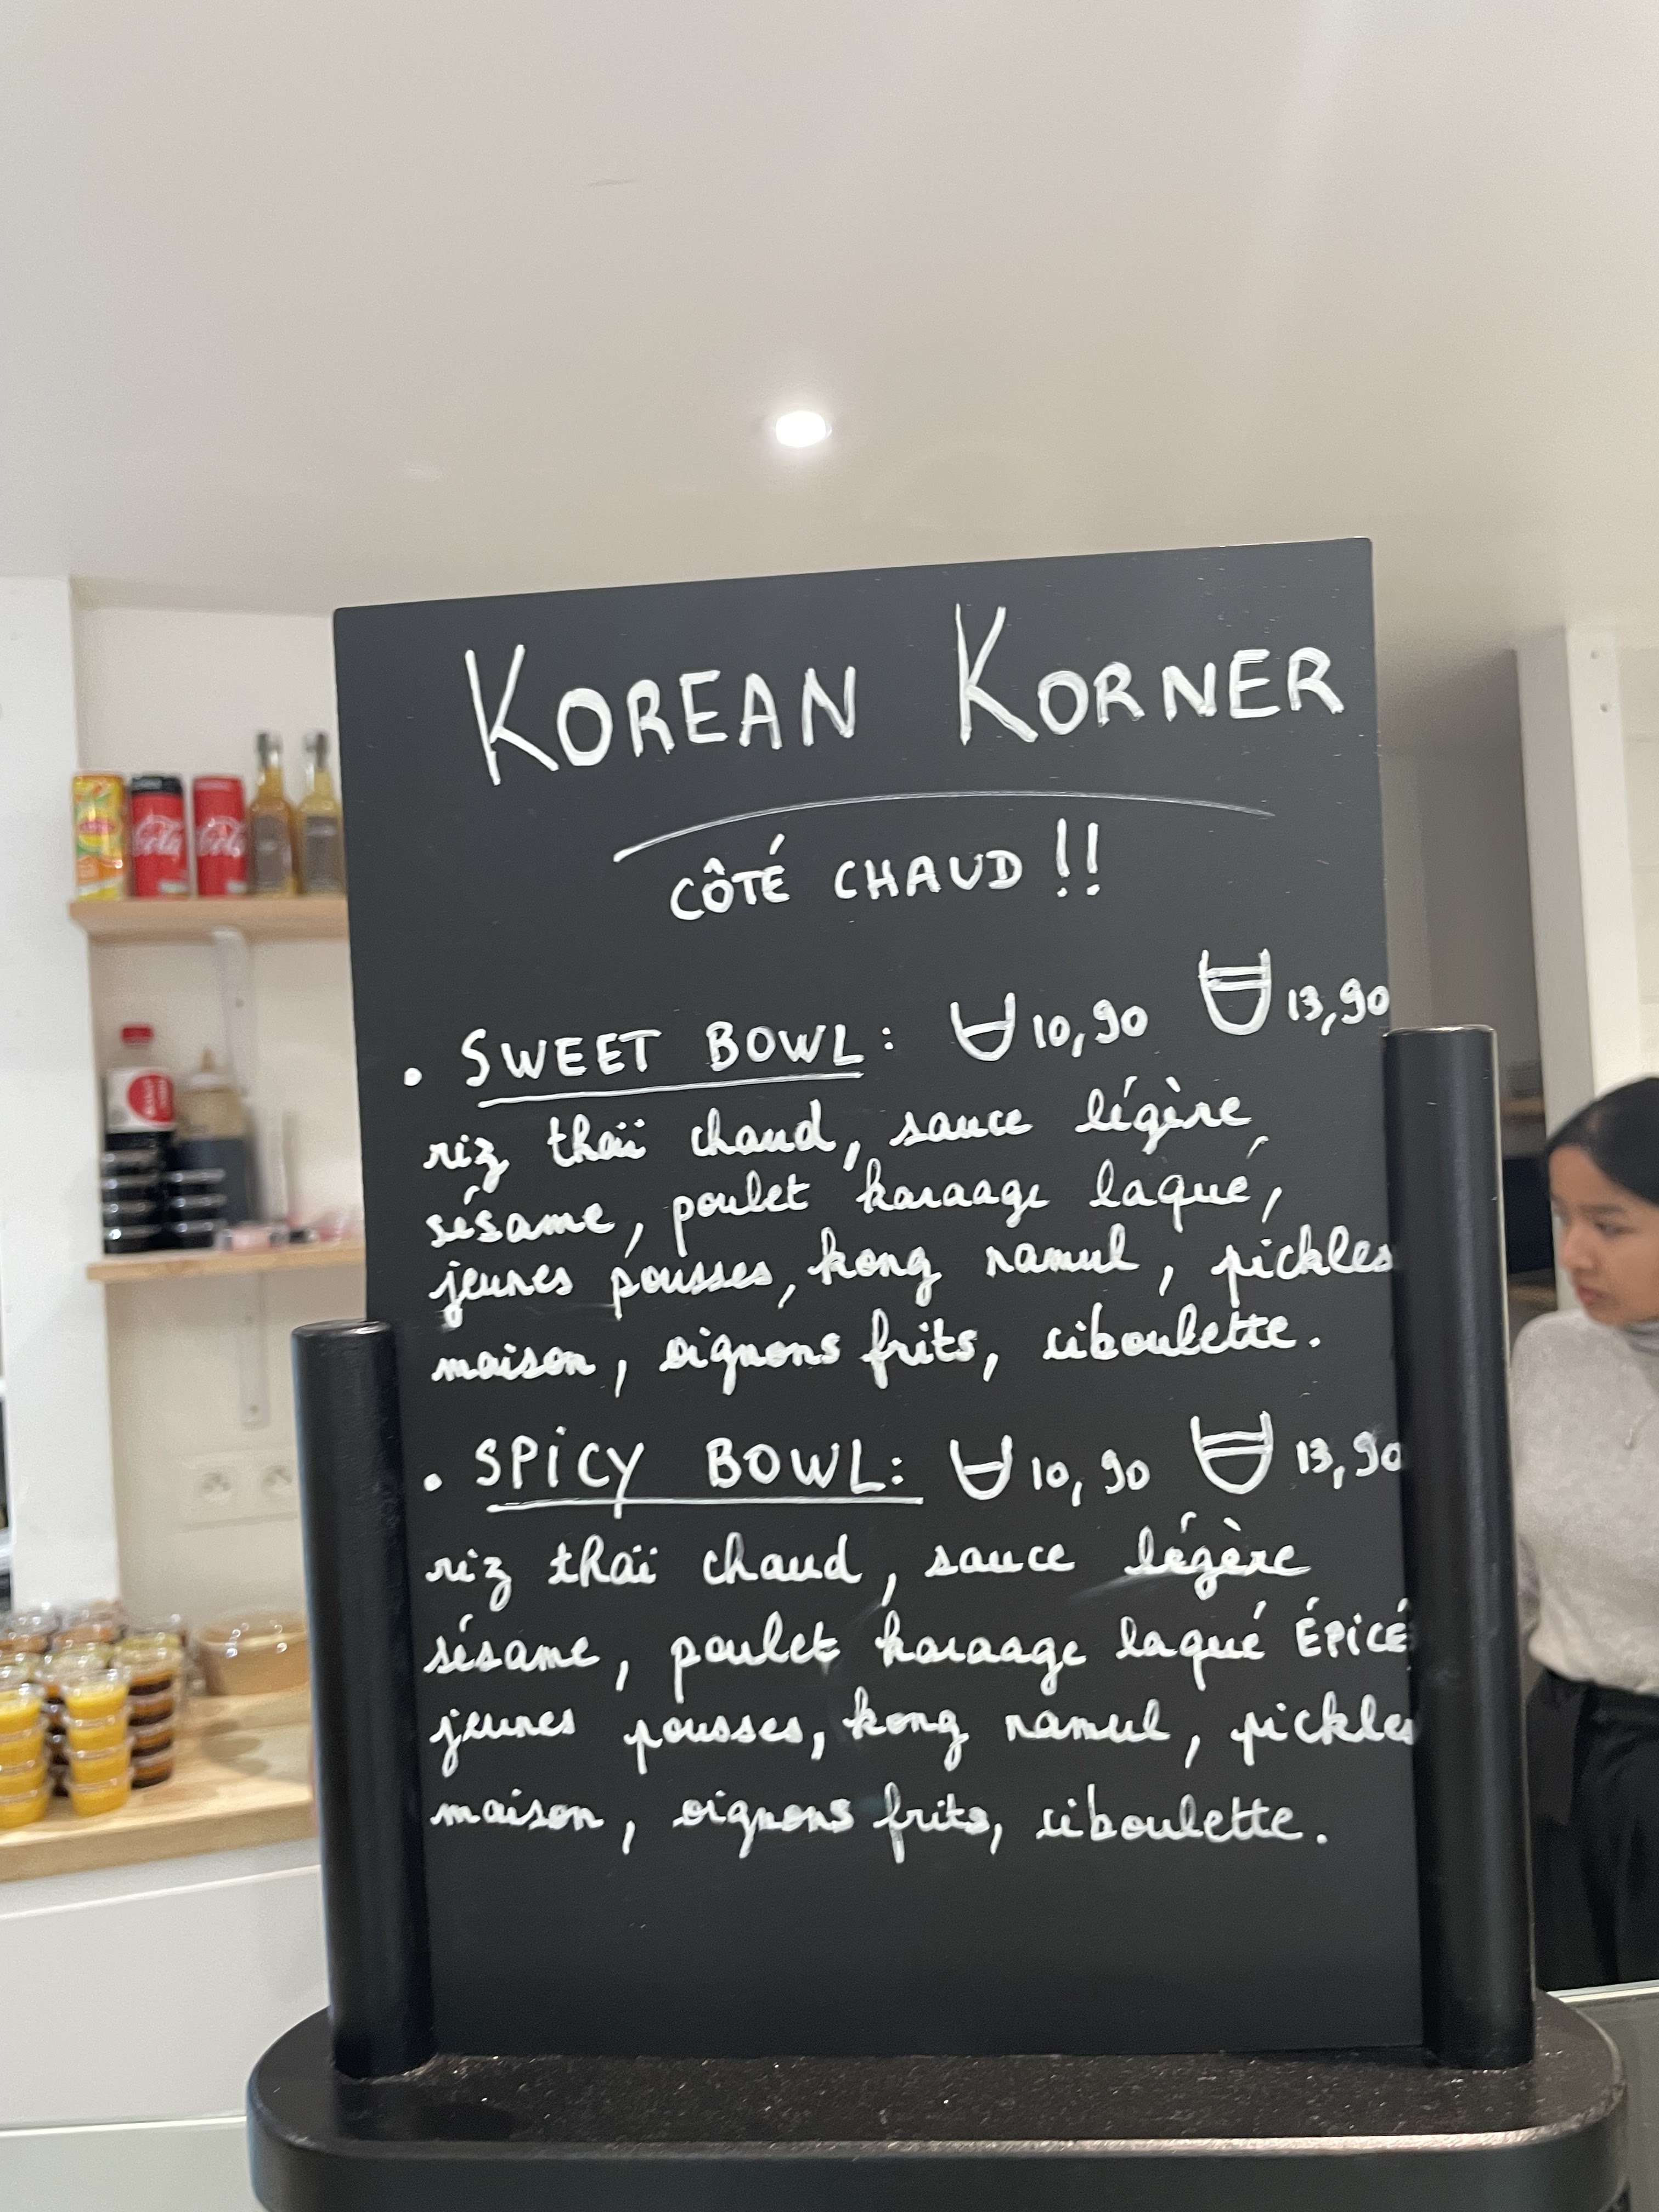 KOREAN KORNER
CÔTÉ CHAUD !!
• SWEET BOWL : 10,90 13,90
riz thaï chaud, sauce légère
sésame, poulet karaage laqué,
jeunes pousses, kong namul, pickles
maison, oignons frits, ciboulette.
• SPICY BOWL : 10,90 13,90
riz thaï chaud, sauce légère
sésame, poulet karaage laqué ÉPICÉ
jeunes pousses, kong namul, pickles
maison, oignons frits, ciboulette.
Cola
Cola